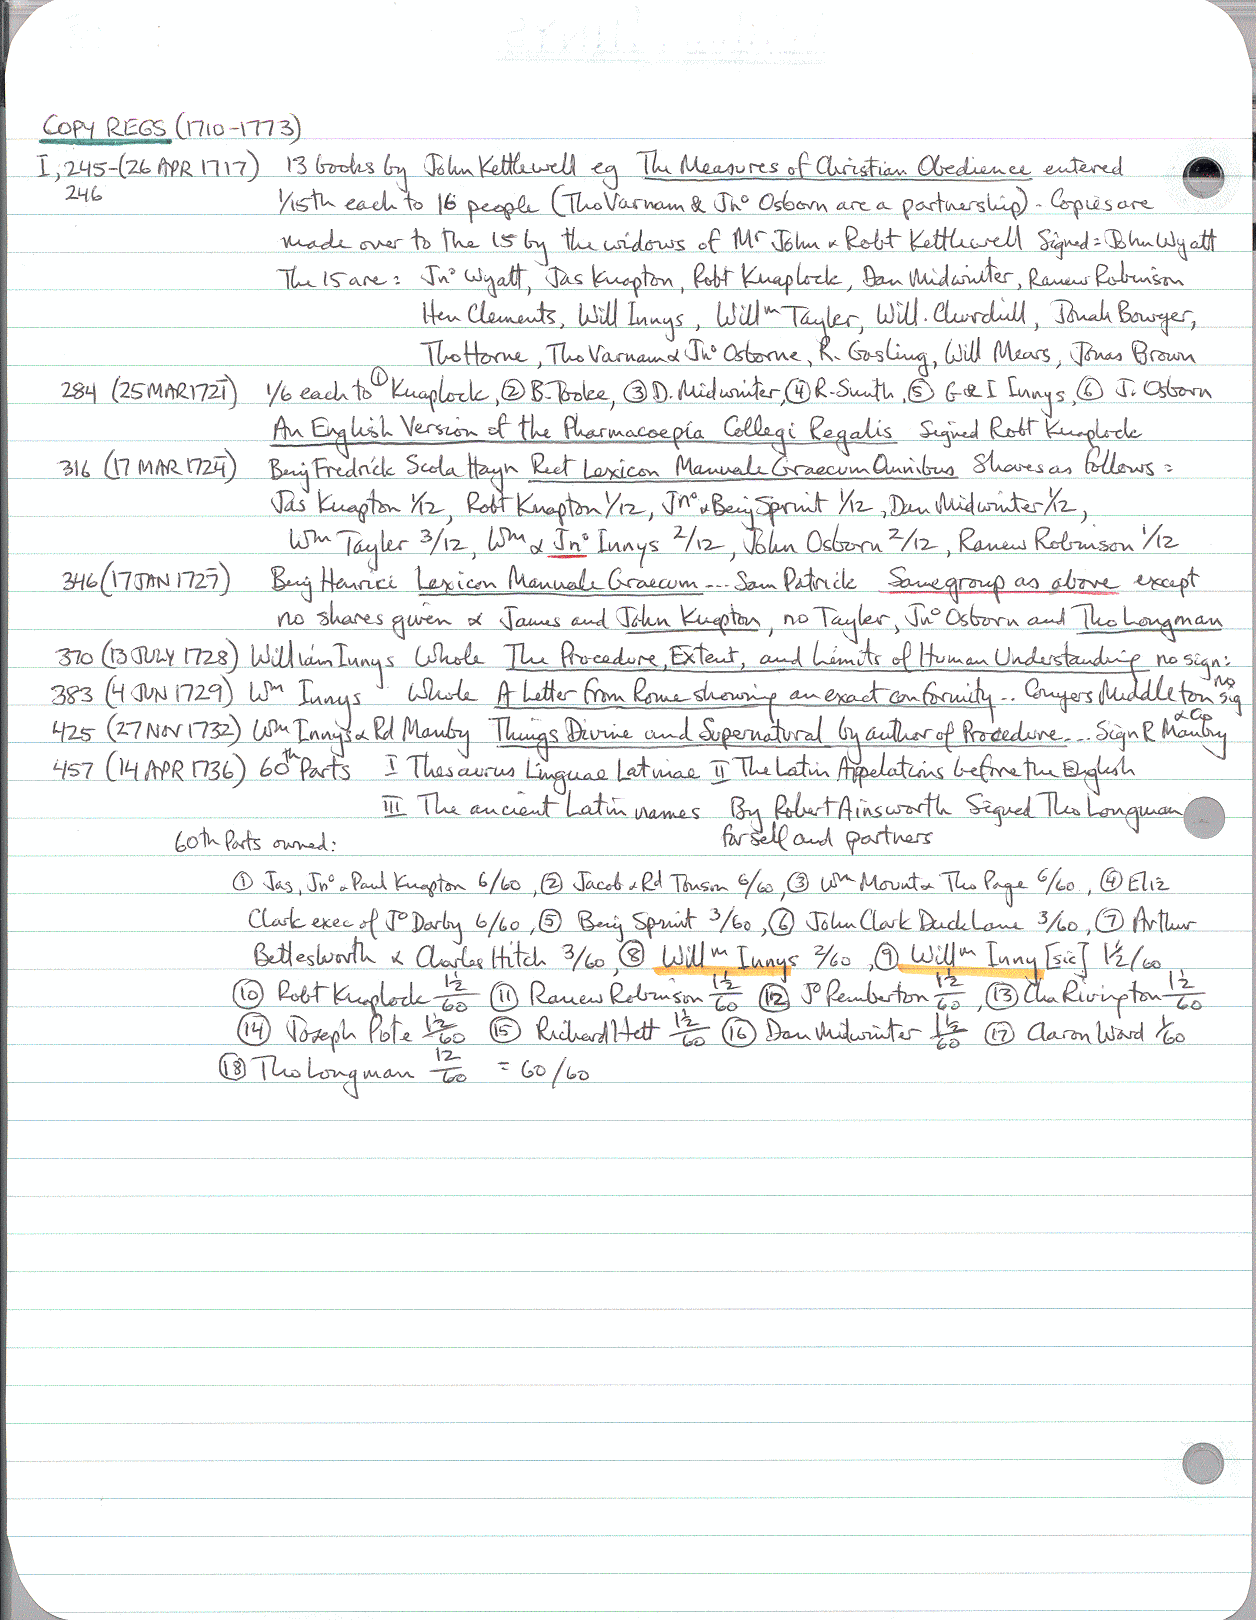 COPY REGS (1710-1773)
I, 245-(26 APR 1717) 13 books by John Kettlewell eg The Measures of Christian Obedience entered
246 1/15th each to 16 people (Tho Varnam & Jno Osborn are a partnership) - Copies are
made over to the 15 by the widows of Mr John & Robt Kettlewell Signed = John Wyatt
The 15 are: Jno Wyatt, Jas Knapton, Robt Knaplock, Dan Midwinter, Ranew Robinson
Hen Clements, Will Innys, Willm Tayler, Will. Churchill, Jonah Bowyer,
Tho Horne, Tho Varnam & Jno Osborne, R. Gosling, Will Mears, Jonas Brown
284 (25 MAR 1721) 1/6 each to ① Knaplock, ② B. Tooke, ③ D. Midwinter, ④ R. Smith, ⑤ G & I Innys, ⑥ J. Osborn
An English Version of the Pharmacoepia Collegi Regalis Signed Robt Knaplock
316 (17 MAR 1724) Benj Fredrick Scola Hayn Rect Lexicon Manuale Graecum Omnibus Shares as follows =
Jas Knapton 1/12, Robt Knapton 1/12, Jno & Benj Sprint 1/12, Dan Midwinter 1/2,
Wm Tayler 3/12, Wm & Jno Innys 2/12, John Osborn 2/12, Ranew Robinson 1/12
346 (17 JAN 1727) Benj Henrici Lexicon Manuale Graecum --- Sam Patrick Same group as above except
no shares given & James and John Knapton, no Tayler, Jno Osborn and Tho Longman
370 (13 JULY 1728) William Innys Whole The Procedure, Extent, and Limits of Human Understanding no sign:
383 (4 JUN 1729) Wm Innys Whole A Letter from Rome showing an exact conformity .. Conyers Middleton no sig
425 (27 NOV 1732) Wm Innys & Rd Manby Things Divine and Supernatural by author of Procedure --- Sign R Manby & Co
457 (14 APR 1736) 60th Parts I Thesaurus Linguae Latinae II The Latin Appelations before the English
III The ancient Latin names By Robert Ainsworth Signed Tho Longman
60th Parts owned: for self and partners
① Jas, Jno & Paul Knapton 6/60, ② Jacob & Rd Tonson 6/60, ③ Wm Mount & Tho Page 6/60, ④ Eliz
Clark exec of Jo Darby 6/60, ⑤ Benj Sprint 3/60, ⑥ John Clark Duck Lane 3/60, ⑦ Arthur
Bettesworth & Charles Hitch 3/60, ⑧ Willm Innys 2/60, ⑨ Willm Inny [sic] 1½/60
⑩ Robt Knaplock 1½/60 ⑪ Ranew Robinson 1½/60 ⑫ Jo Pemberton 1½/60, ⑬ Cha Rivington 1½/60
⑭ Joseph Pote 1½/60 ⑮ Richard Hett 1½/60 ⑯ Dan Midwinter 1½/60 ⑰ Aaron Ward 1/60
⑱ Tho Longman 12/60 = 60/60